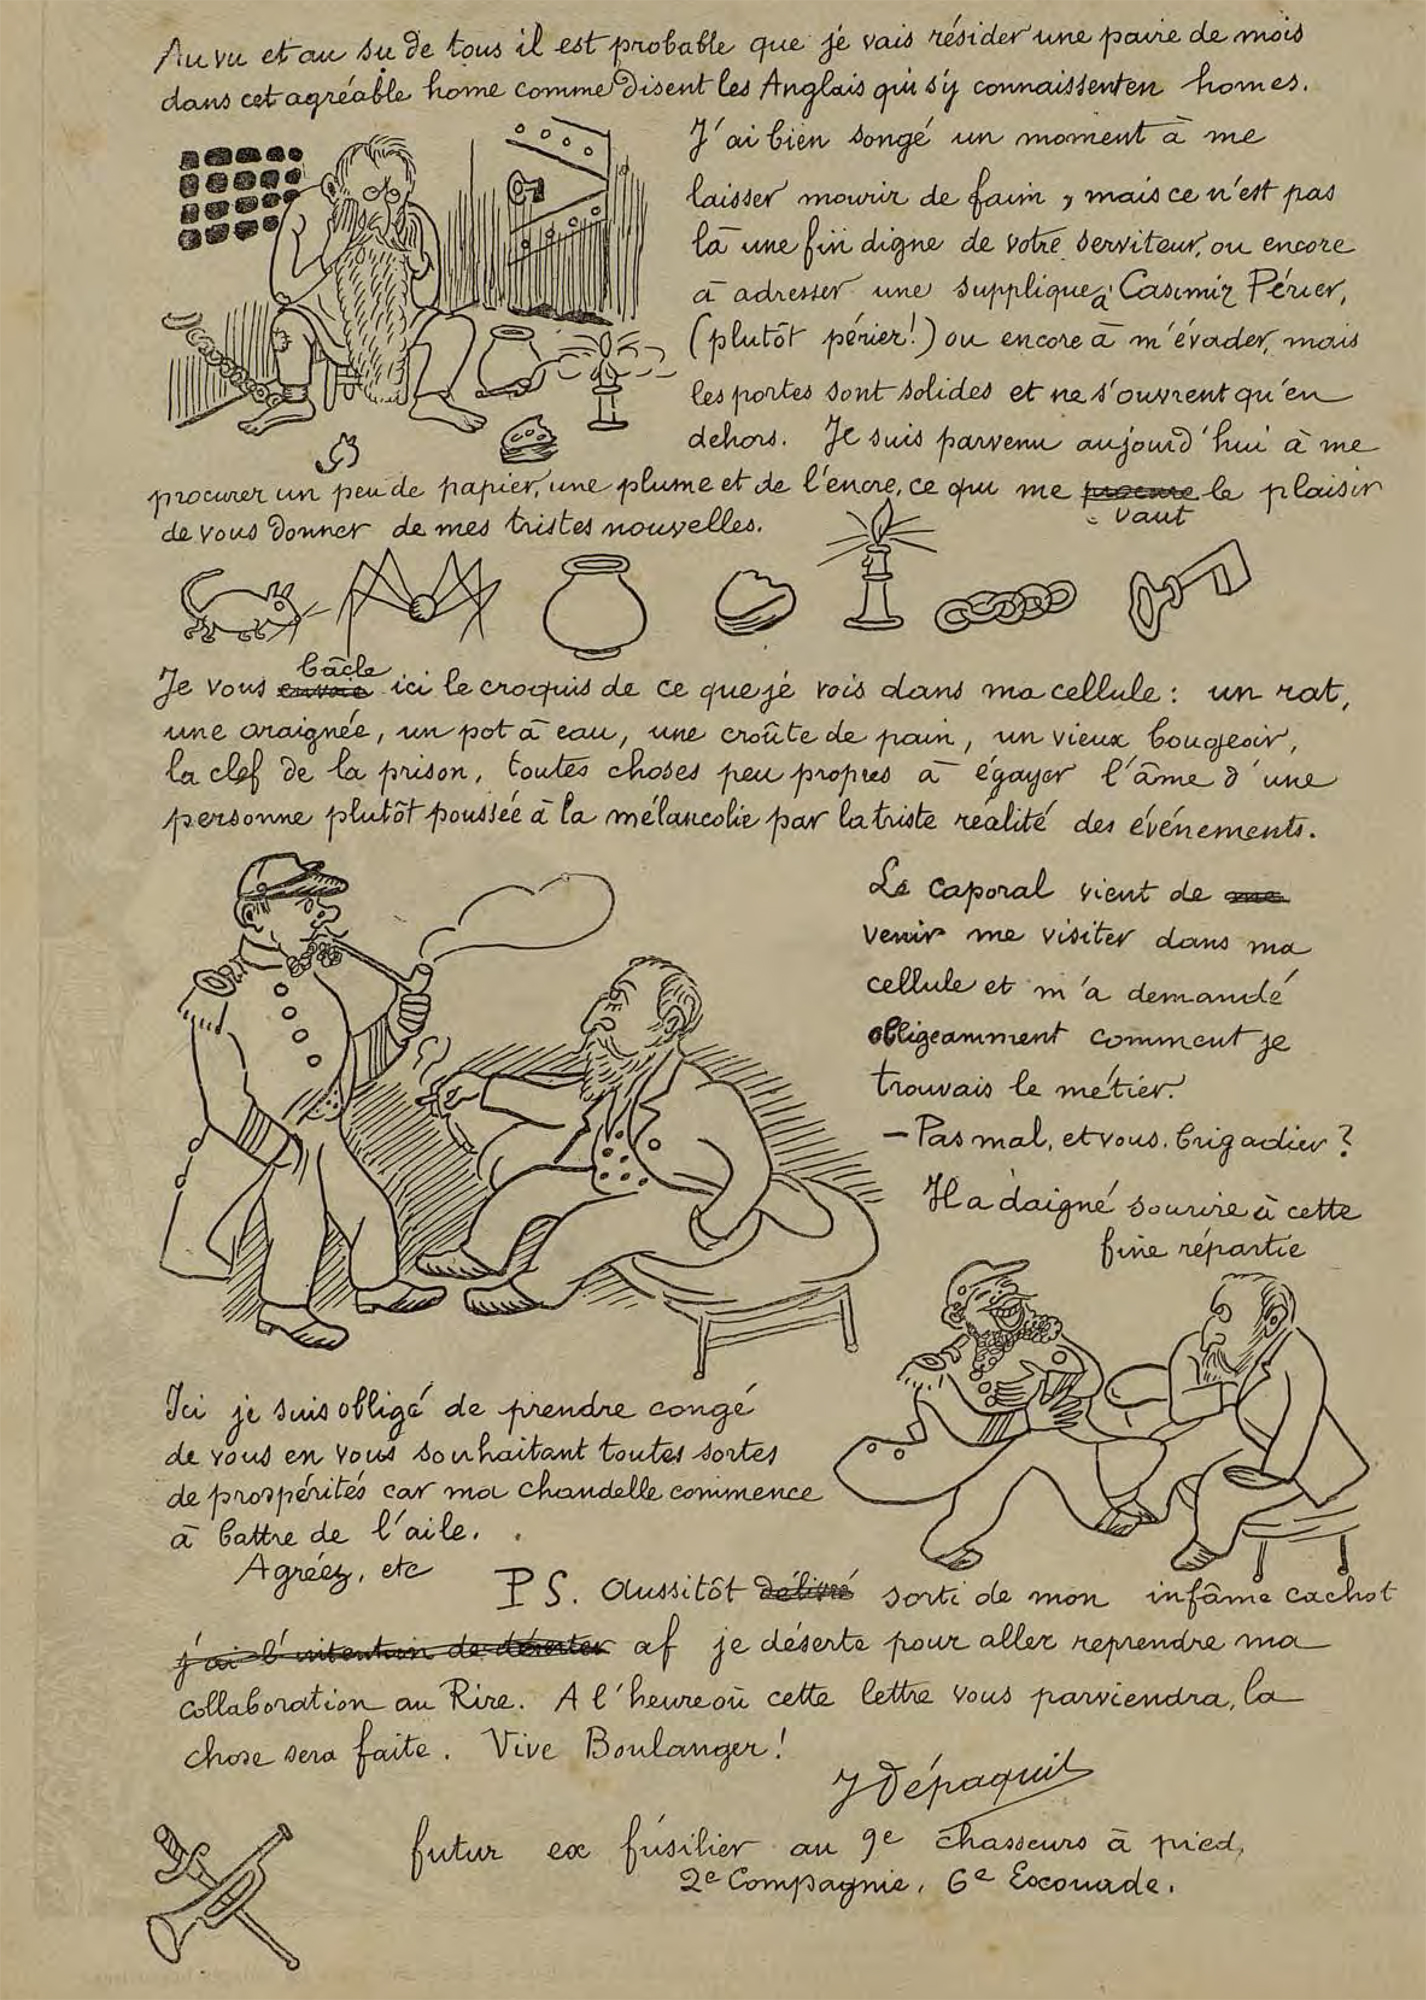 Au vu et au su de tous il est probable que je vais résider une paire de mois
dans cet agréable home comme disent les Anglais qui s'y connaissent en homes.
J'ai bien songé un moment à me
laisser mourir de faim, mais ce n'est pas
là une fin digne de votre serviteur, ou encore
à adresser une supplique à Casimir Périer,
(plutôt périer!) ou encore à m'évader, mais
les portes sont solides et ne s'ouvrent qu'en
dehors. Je suis parvenu aujourd'hui à me
procurer un peu de papier, une plume et de l'encre, ce qui me procure le plaisir
vaut
de vous donner de mes tristes nouvelles.
bâcle
Je vous envoie ici le croquis de ce que je vois dans ma cellule : un rat,
une araignée, un pot à eau, une croûte de pain, un vieux bougeoir,
la clef de la prison, toutes choses peu propres à égayer l'âme d'une
personne plutôt poussée à la mélancolie par la triste réalité des événements.
Le caporal vient de me
venir me visiter dans ma
cellule et m'a demandé
obligeamment comment je
trouvais le métier.
— Pas mal, et vous, brigadier ?
Il a daigné sourire à cette
fine répartie
Ici je suis obligé de prendre congé
de vous en vous souhaitant toutes sortes
de prospérités car ma chandelle commence
à battre de l'aile.
Agréez, etc
PS. Aussitôt délivré sorti de mon infâme cachot
j'ai l'intention de déserter af je déserte pour aller reprendre ma
collaboration au Rire. A l'heure où cette lettre vous parviendra, la
chose sera faite. Vive Boulanger!
J Dépaquit
futur ex fusilier au 9e chasseurs à pied,
2e Compagnie, 6e Escouade.